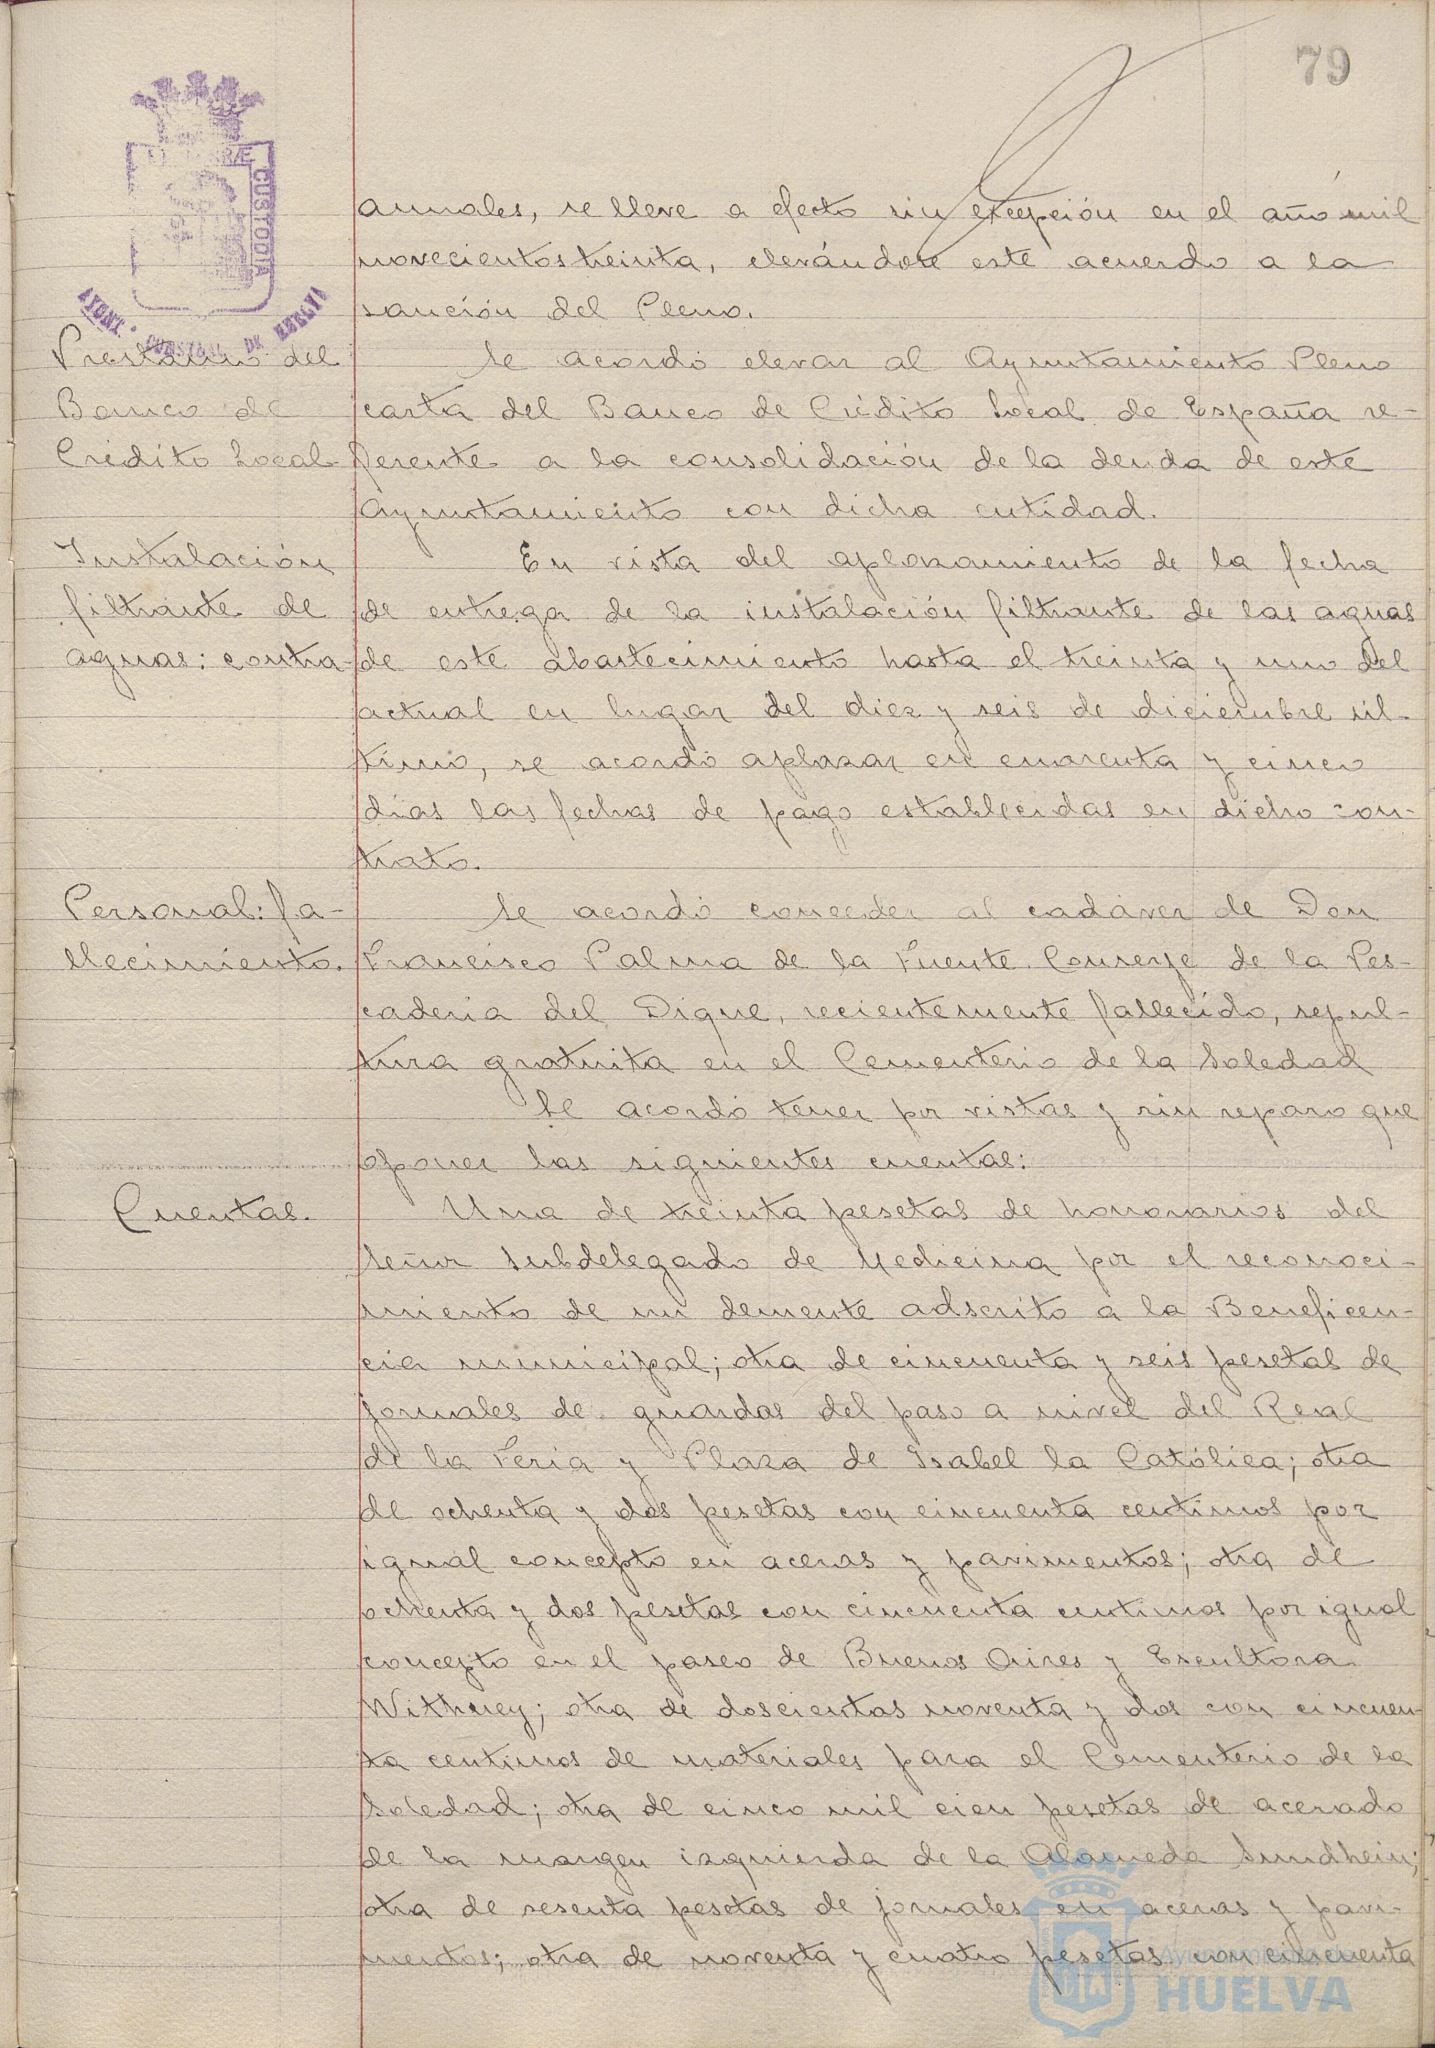 79
PORTUS MARIS ET TERRÆ CUSTODIA
AYONT. CONSTNAL DE HUELVA
anuales, se lleve a efecto sin excepción en el año mil
novecientos treinta, elevándose este acuerdo a la
sanción del Pleno.
Prestamo del
Banco de
Crédito Local
Se acordó elevar al Ayuntamiento Pleno
carta del Banco de Crédito Local de España re-
ferente a la consolidación de la deuda de este
Ayuntamiento con dicha entidad.
Instalación
filtrante de
aguas: contra-
En vista del aplazamiento de la fecha
de entrega de la instalación filtrante de las aguas
de este abastecimiento hasta el treinta y uno del
actual en lugar del diez y seis de diciembre úl-
timo, se acordó aplazar en cuarenta y cinco
días las fechas de pago establecidas en dicho con-
trato.
Personal: fa-
llecimiento.
Se acordó conceder al cadáver de Don
Francisco Palma de la Fuente Conserje de la Pes-
caderia del Dique, recientemente fallecido, sepul-
tura gratuita en el Cementerio de la Soledad
Se acordó tener por vistas y sin reparo que
oponer las siguientes cuentas:
Cuentas.
Una de treinta pesetas de honorarios del
señor Subdelegado de Medicina por el reconoci-
miento de un demente adscrito a la Beneficen-
cia municipal; otra de cincuenta y seis pesetas de
jornales de guardas del paso a nivel del Real
de la Feria y Plaza de Isabel la Católica; otra
de ochenta y dos pesetas con cincuenta centimos por
igual concepto en aceras y pavimentos; otra de
ochenta y dos pesetas con cincuenta centimos por igual
concepto en el paseo de Buenos Aires y Escultora
Withney; otra de doscientas noventa y dos con cincuen-
ta centimos de materiales para el Cementerio de la
Soledad; otra de cinco mil cien pesetas de acerado
de la margen izquierda de la Alameda Sundhein;
otra de sesenta pesetas de jornales en aceras y pavi-
mentos; otra de noventa y cuatro pesetas con cincuenta
Ayuntamiento de
HUELVA